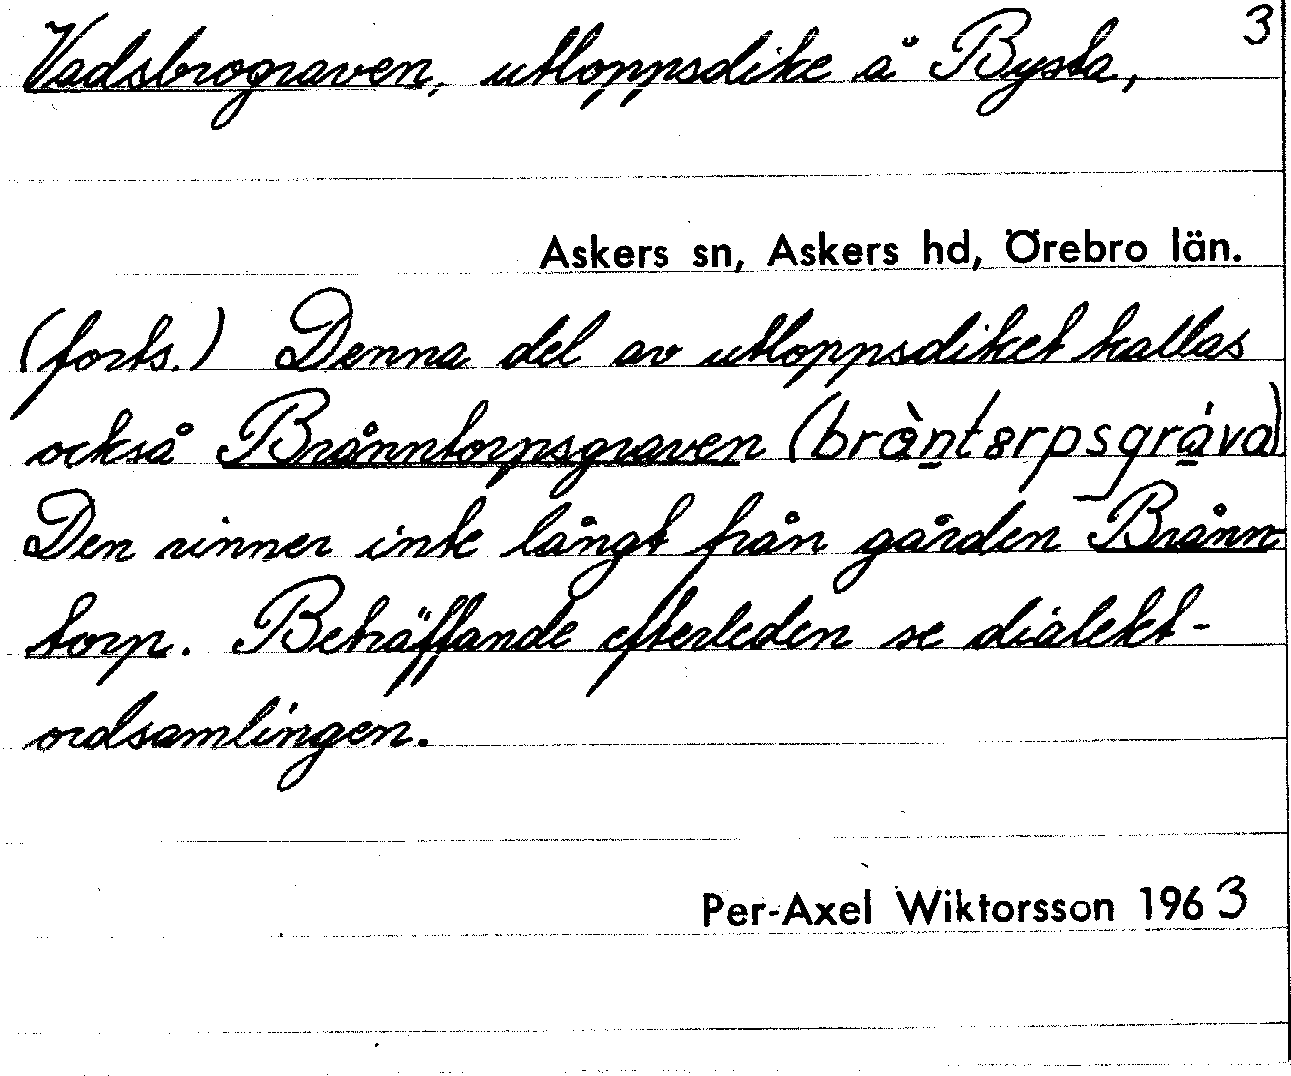 3
Vadsbrograven, utloppsdike å Bysta,
Askers sn, Askers hd, Örebro län.
(forts.) Denna del av utloppsdiket kallas
också Brånntorpsgraven (bràntɵrpsgráva)
Den rinner inte långt från gården Brånn-
torp. Beträffande efterleden se dialekt-
ordsamlingen.
Per-Axel Wiktorsson 1963